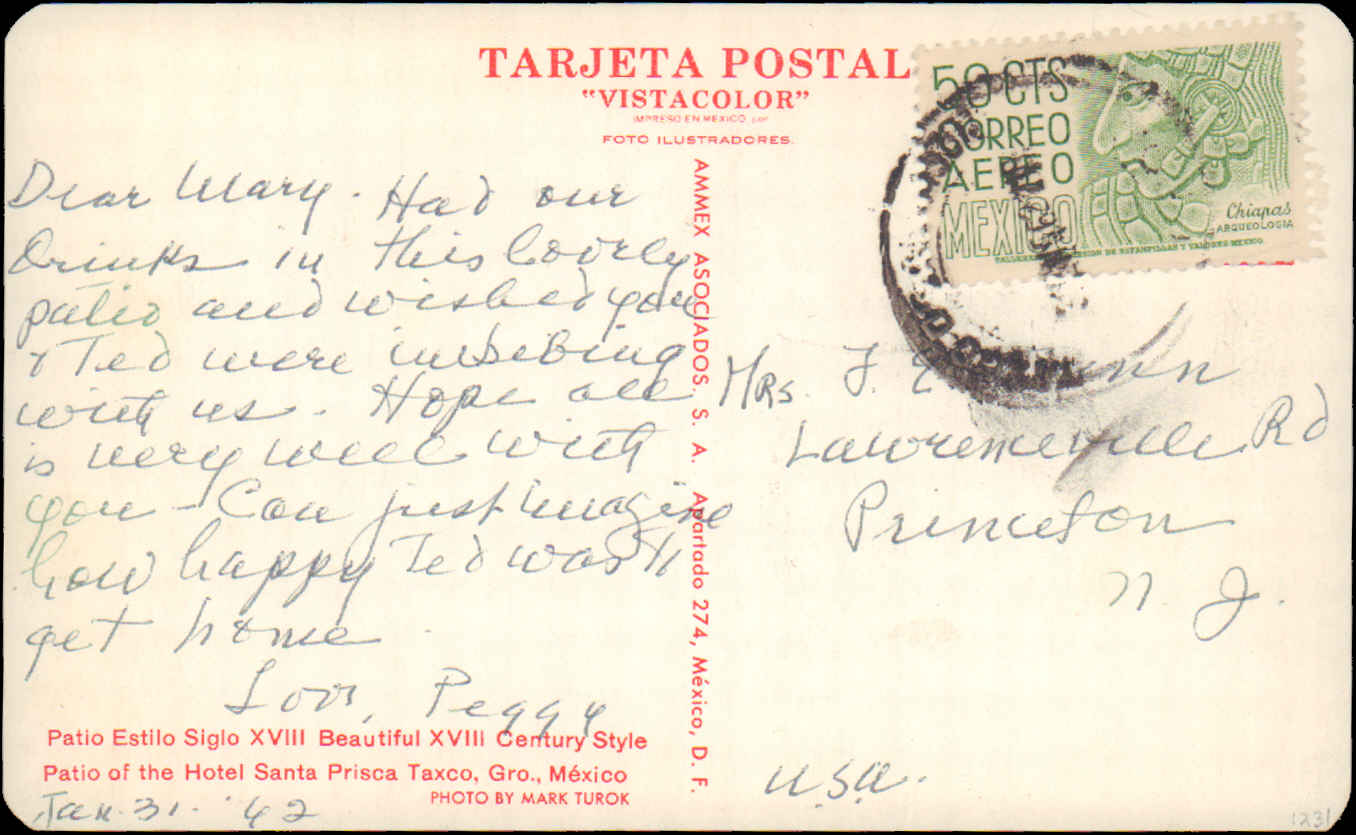 TARJETA POSTAL
"VISTACOLOR"
IMPRESO EN MEXICO por
FOTO ILUSTRADORES.
50 CTS
CORREO
AEREO
MEXICO
Chiapas
ARQUEOLOGIA
Dear Mary. Had our
drinks in this lovely
patio and wished you
& Ted were imbibing
with us. Hope all
is very well with
you - Can just imagine
how happy Ted was to
get home.
Love, Peggy
Patio Estilo Siglo XVIII Beautiful XVIII Century Style
Patio of the Hotel Santa Prisca Taxco, Gro., México
PHOTO BY MARK TUROK
Jan. 31 - '62
AMMEX ASOCIADOS. S. A. Apartado 274, México, D. F.
Mrs.
Lawrenceville Rd
Princeton
N. J.
U.S.A.
1231